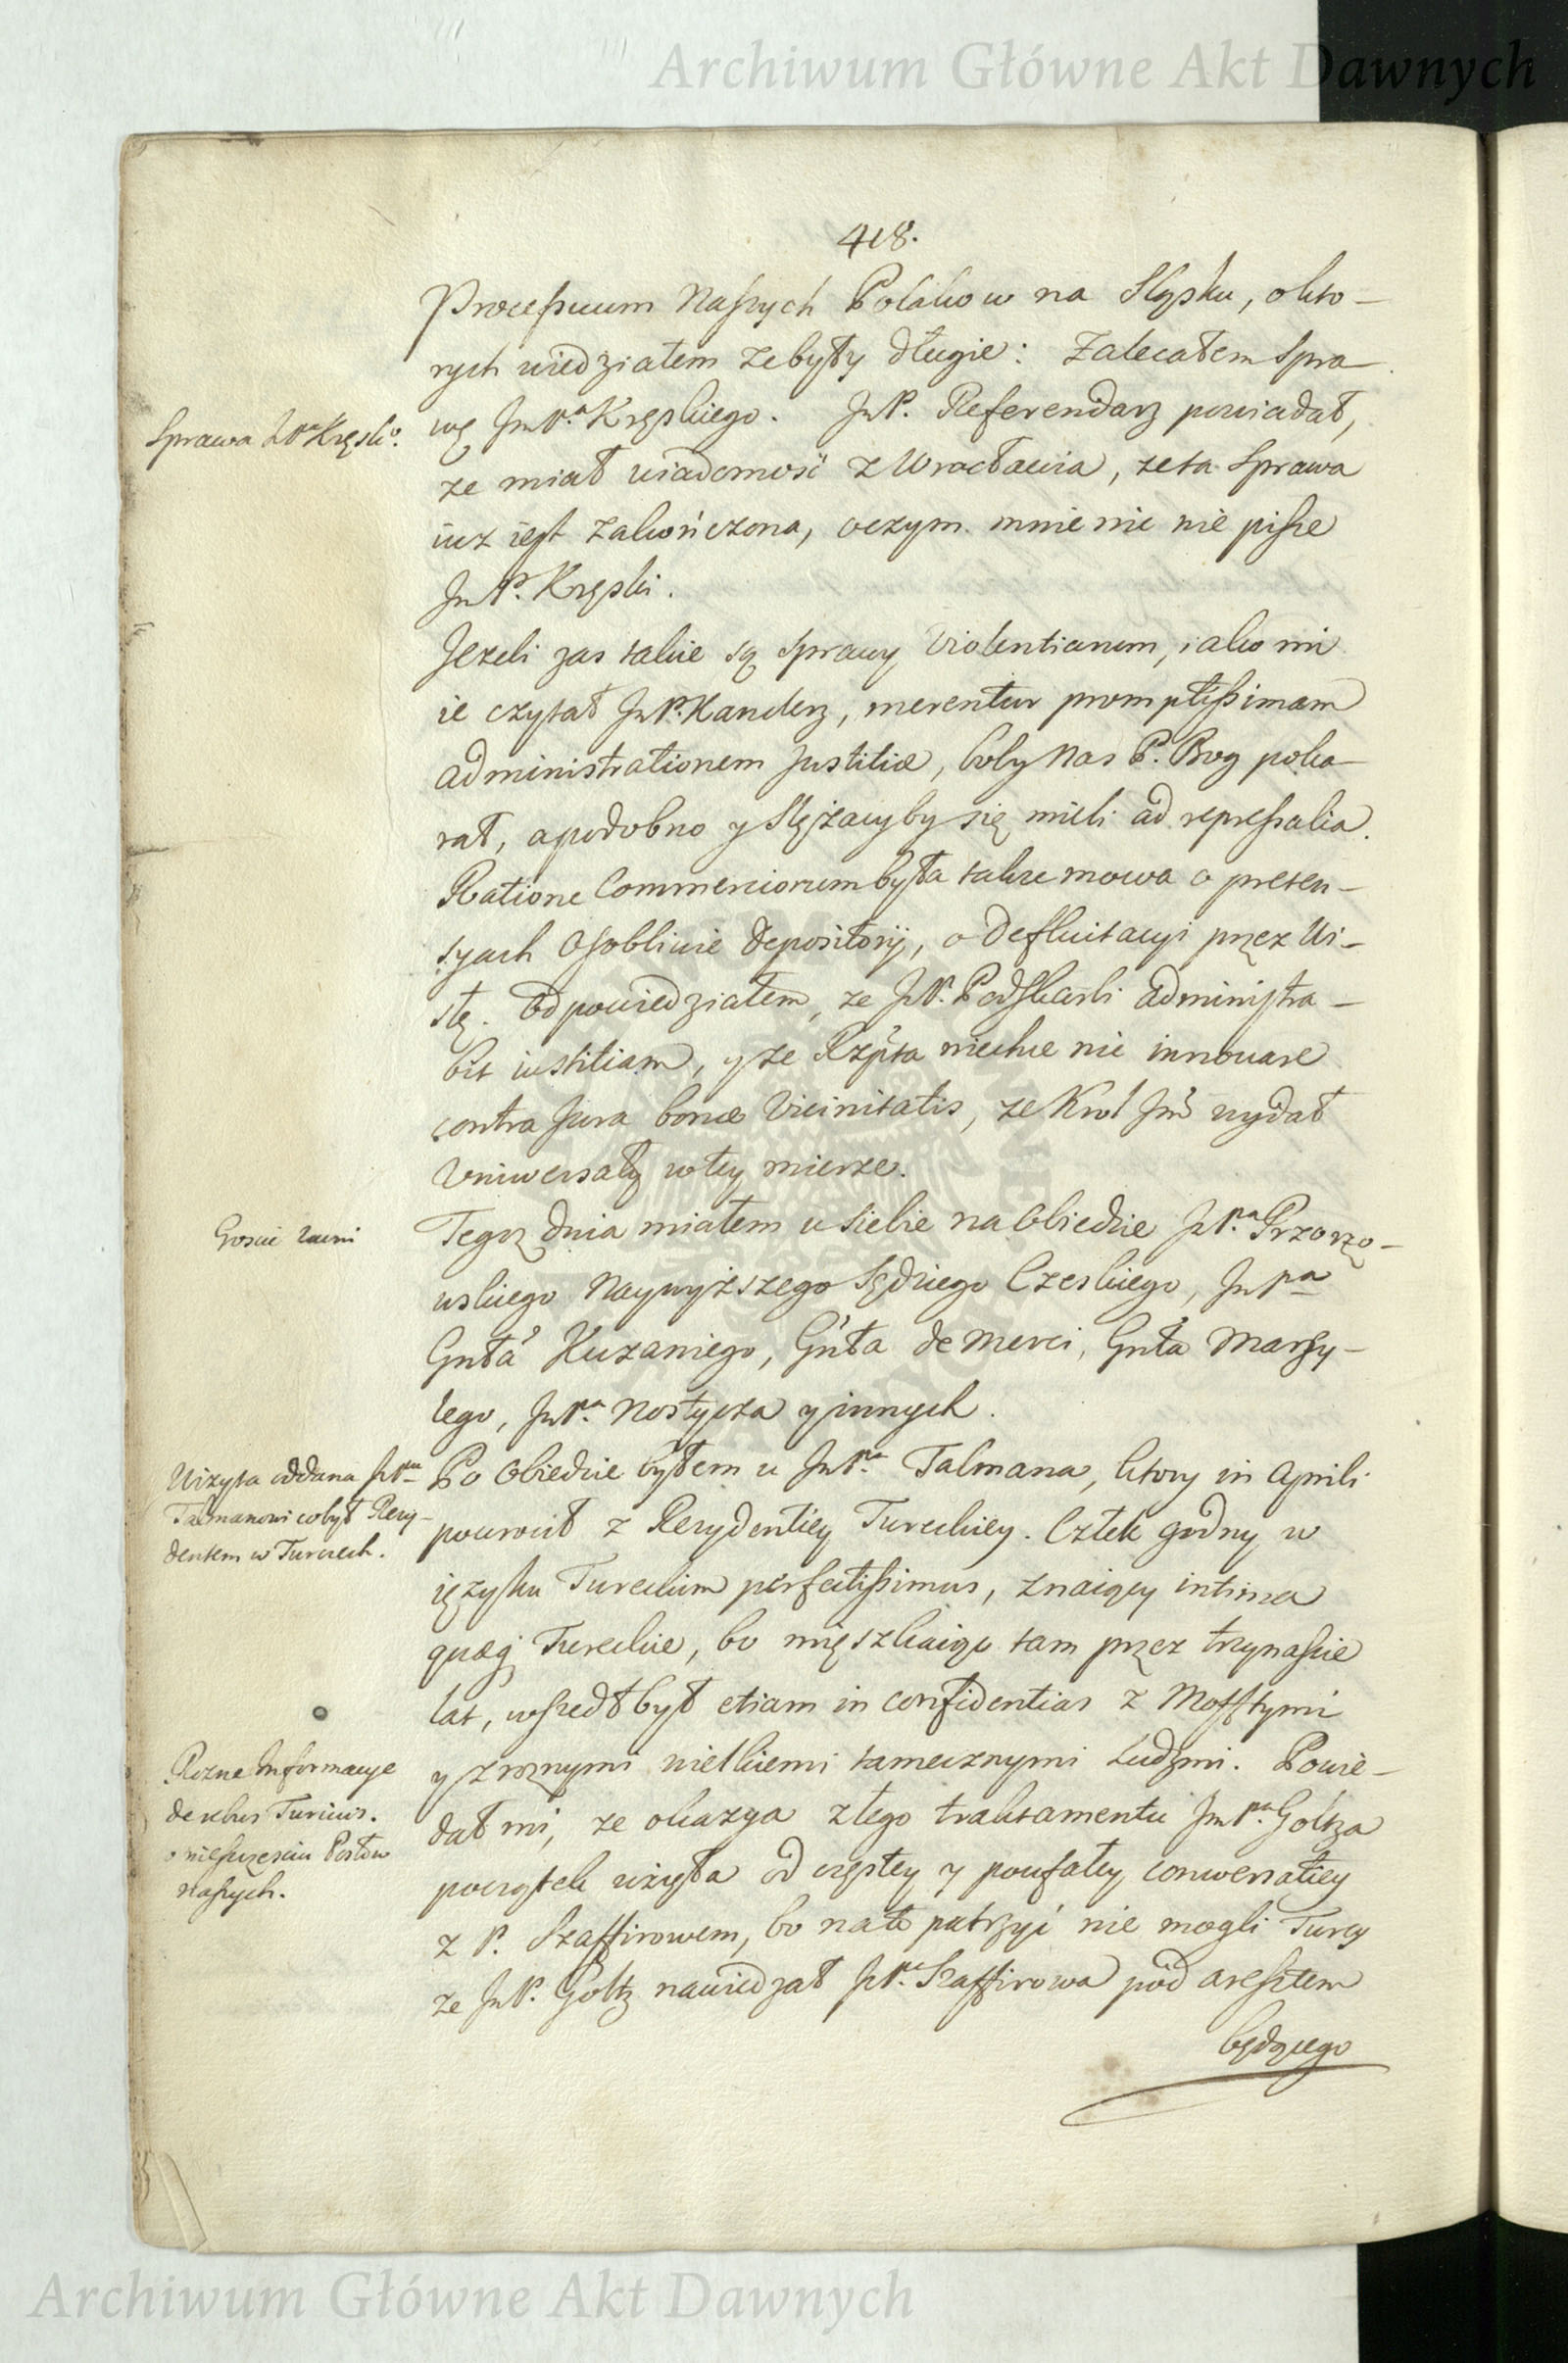 Archiwum Główne Akt Dawnych
418.
Processuum Naszych Polakow na Sląsku, okto-
rych wiedziałem ze były długie: Zalecałem Spra-
Sprawa JPa Kręskio.
wę JmPa Kręskiego. JmP. Referendarz powiadał,
ze miał wiadomość z Wrocławia, ze ta Sprawa
iuz iest zakończona, oczym mnie nic nie pisze
JmP. Kręski.
Jezeli zas takie są Sprawy Violentiarum, iako mi
ie czytał JmP. Kanclerz, merentur promptissimam
administrationem Justitiæ, boby nas P. Bog poka-
rał, apodobno y Slęzacyby się mieli ad repressalia.
Ratione Commerciorum była takze mowa o preten-
syach Osobliwie depositorij, o defluitacyi przez Wi-
słę. Odpowiedziałem, ze JmP. Podskarbi administra-
bit iustitiam, y ze Rzpta niechce nic innovare
contra Jura bonæ Vicinitatis, ze Krol Jmć wydał
Vniwersały wtey mierze.
Goscie u mnie
Tegoz dnia miałem u siebie na Obiedzie JmPa Przorzo-
wskiego Naywyższego Sędziego Czeskiego, JmPa
Gnła Kuzaniego, Gnła de Merci, Gnła Marsy-
lego, JmPa Nostycza y innych.
Wizyta oddana JmPu
Talmanowi co był Rezy-
dentem w Turczech.
Po Obiedzie byłem u JmPa Talmana, ktory in Aprili
powrocił z Rezydentiey Tureckiey. Człek godny w
ięzyku Tureckim perfectissimus, znaiący intima
quæq Tureckie, bo mięszkaiąc tam przez trzynascie
lat, wszedł był etiam in confidentias z Mofftymi
Rozne Informacye
de rebus Turicis.
o nieszczesciu Posłow
naszych.
y z roznymi wielkiemi tamecznymi Ludzmi. Powie-
dał mi, ze okazya złego traktamentu JmPa Goltza
początek wzięła od częstey y poufałey conwersatiey
z P. Szaffirowem, bo nato patrzyć nie mogli Turcy
ze JmP. Goltz nawiedzał JmPa Szaffirowa pod aresztem
będącego
Archiwum Główne Akt Dawnych